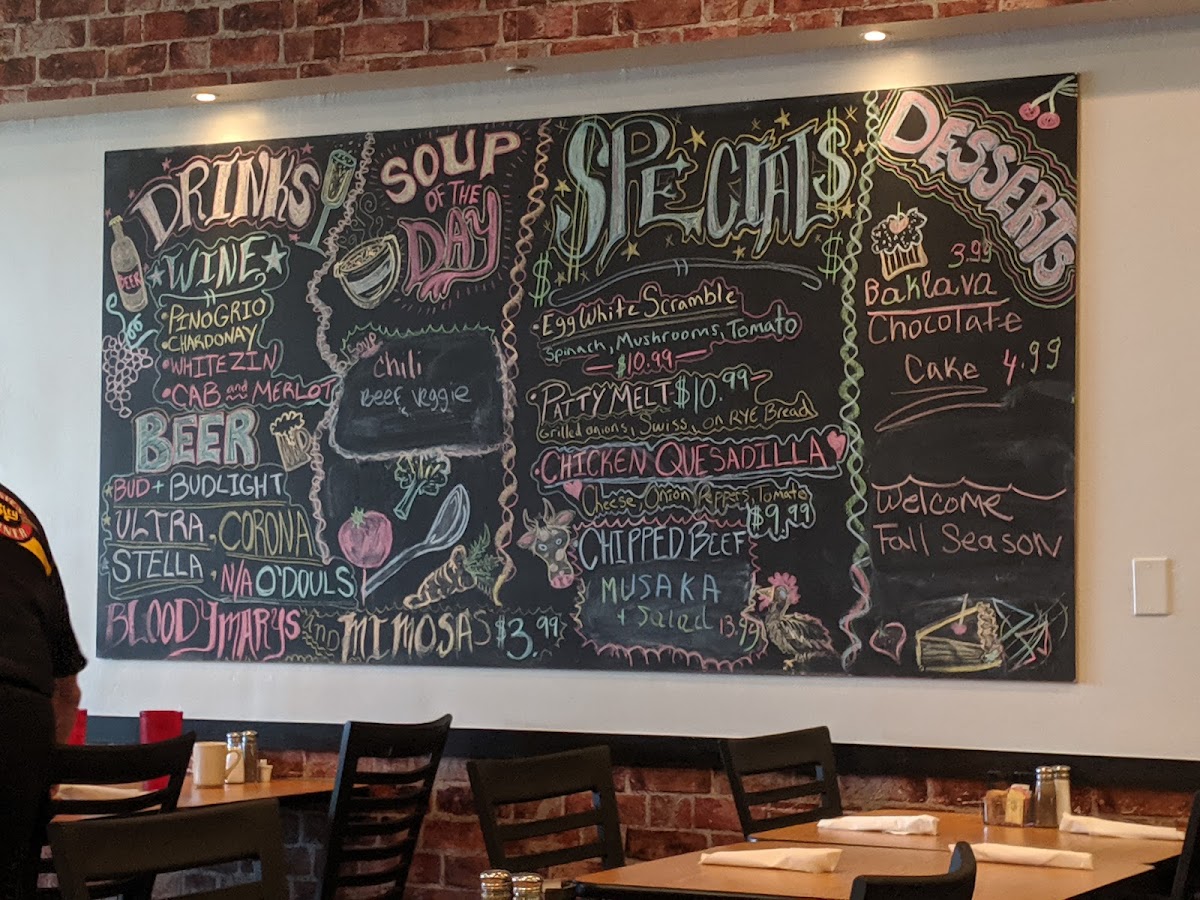 DRINKS
WINE
• PINOGRIO
• CHARDONAY
• WHITE ZIN
• CAB and MERLOT
BEER
BEER
BUD + BUDLIGHT
ULTRA, CORONA
STELLA, N/A O'DOULS
BLOODY MARYS AND MIMOSAS $3.99
SOUP
OF THE
DAY
Soup
Chili
Beef Veggie
$PECIAL$
$ $
• Egg White Scramble
Spinach, Mushrooms, Tomato
— $10.99 —
• PATTY MELT $10.99 —
Grilled onions, Swiss, on RYE Bread
• CHICKEN QUESADILLA
Cheese, Onion, Peppers, Tomato
$9.99
CHIPPED BEEF
MUSAKA
+ Salad 13.99
DESSERTS
3.99
Baklava
Chocolate
Cake 4.99
Welcome
Fall Season